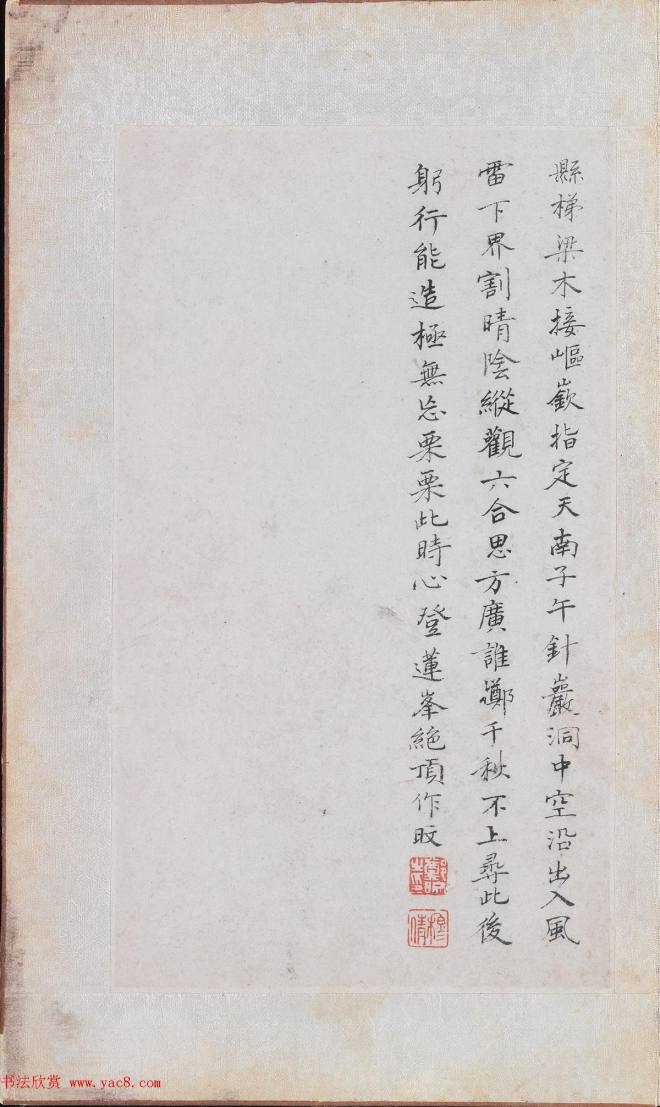 縣梯梁木接嶇嶔指定天南子午針巖洞中空沿出入風
雷下界割晴陰縱觀六合思方廣誰千秋不上尋此後
躬行能造極無忘栗栗此時心登蓮峯絕頂作旼
穆倩
书法欣赏 www.yac8.com